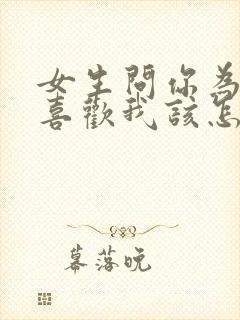 女生問你為
喜歡我該怎
幕落晚